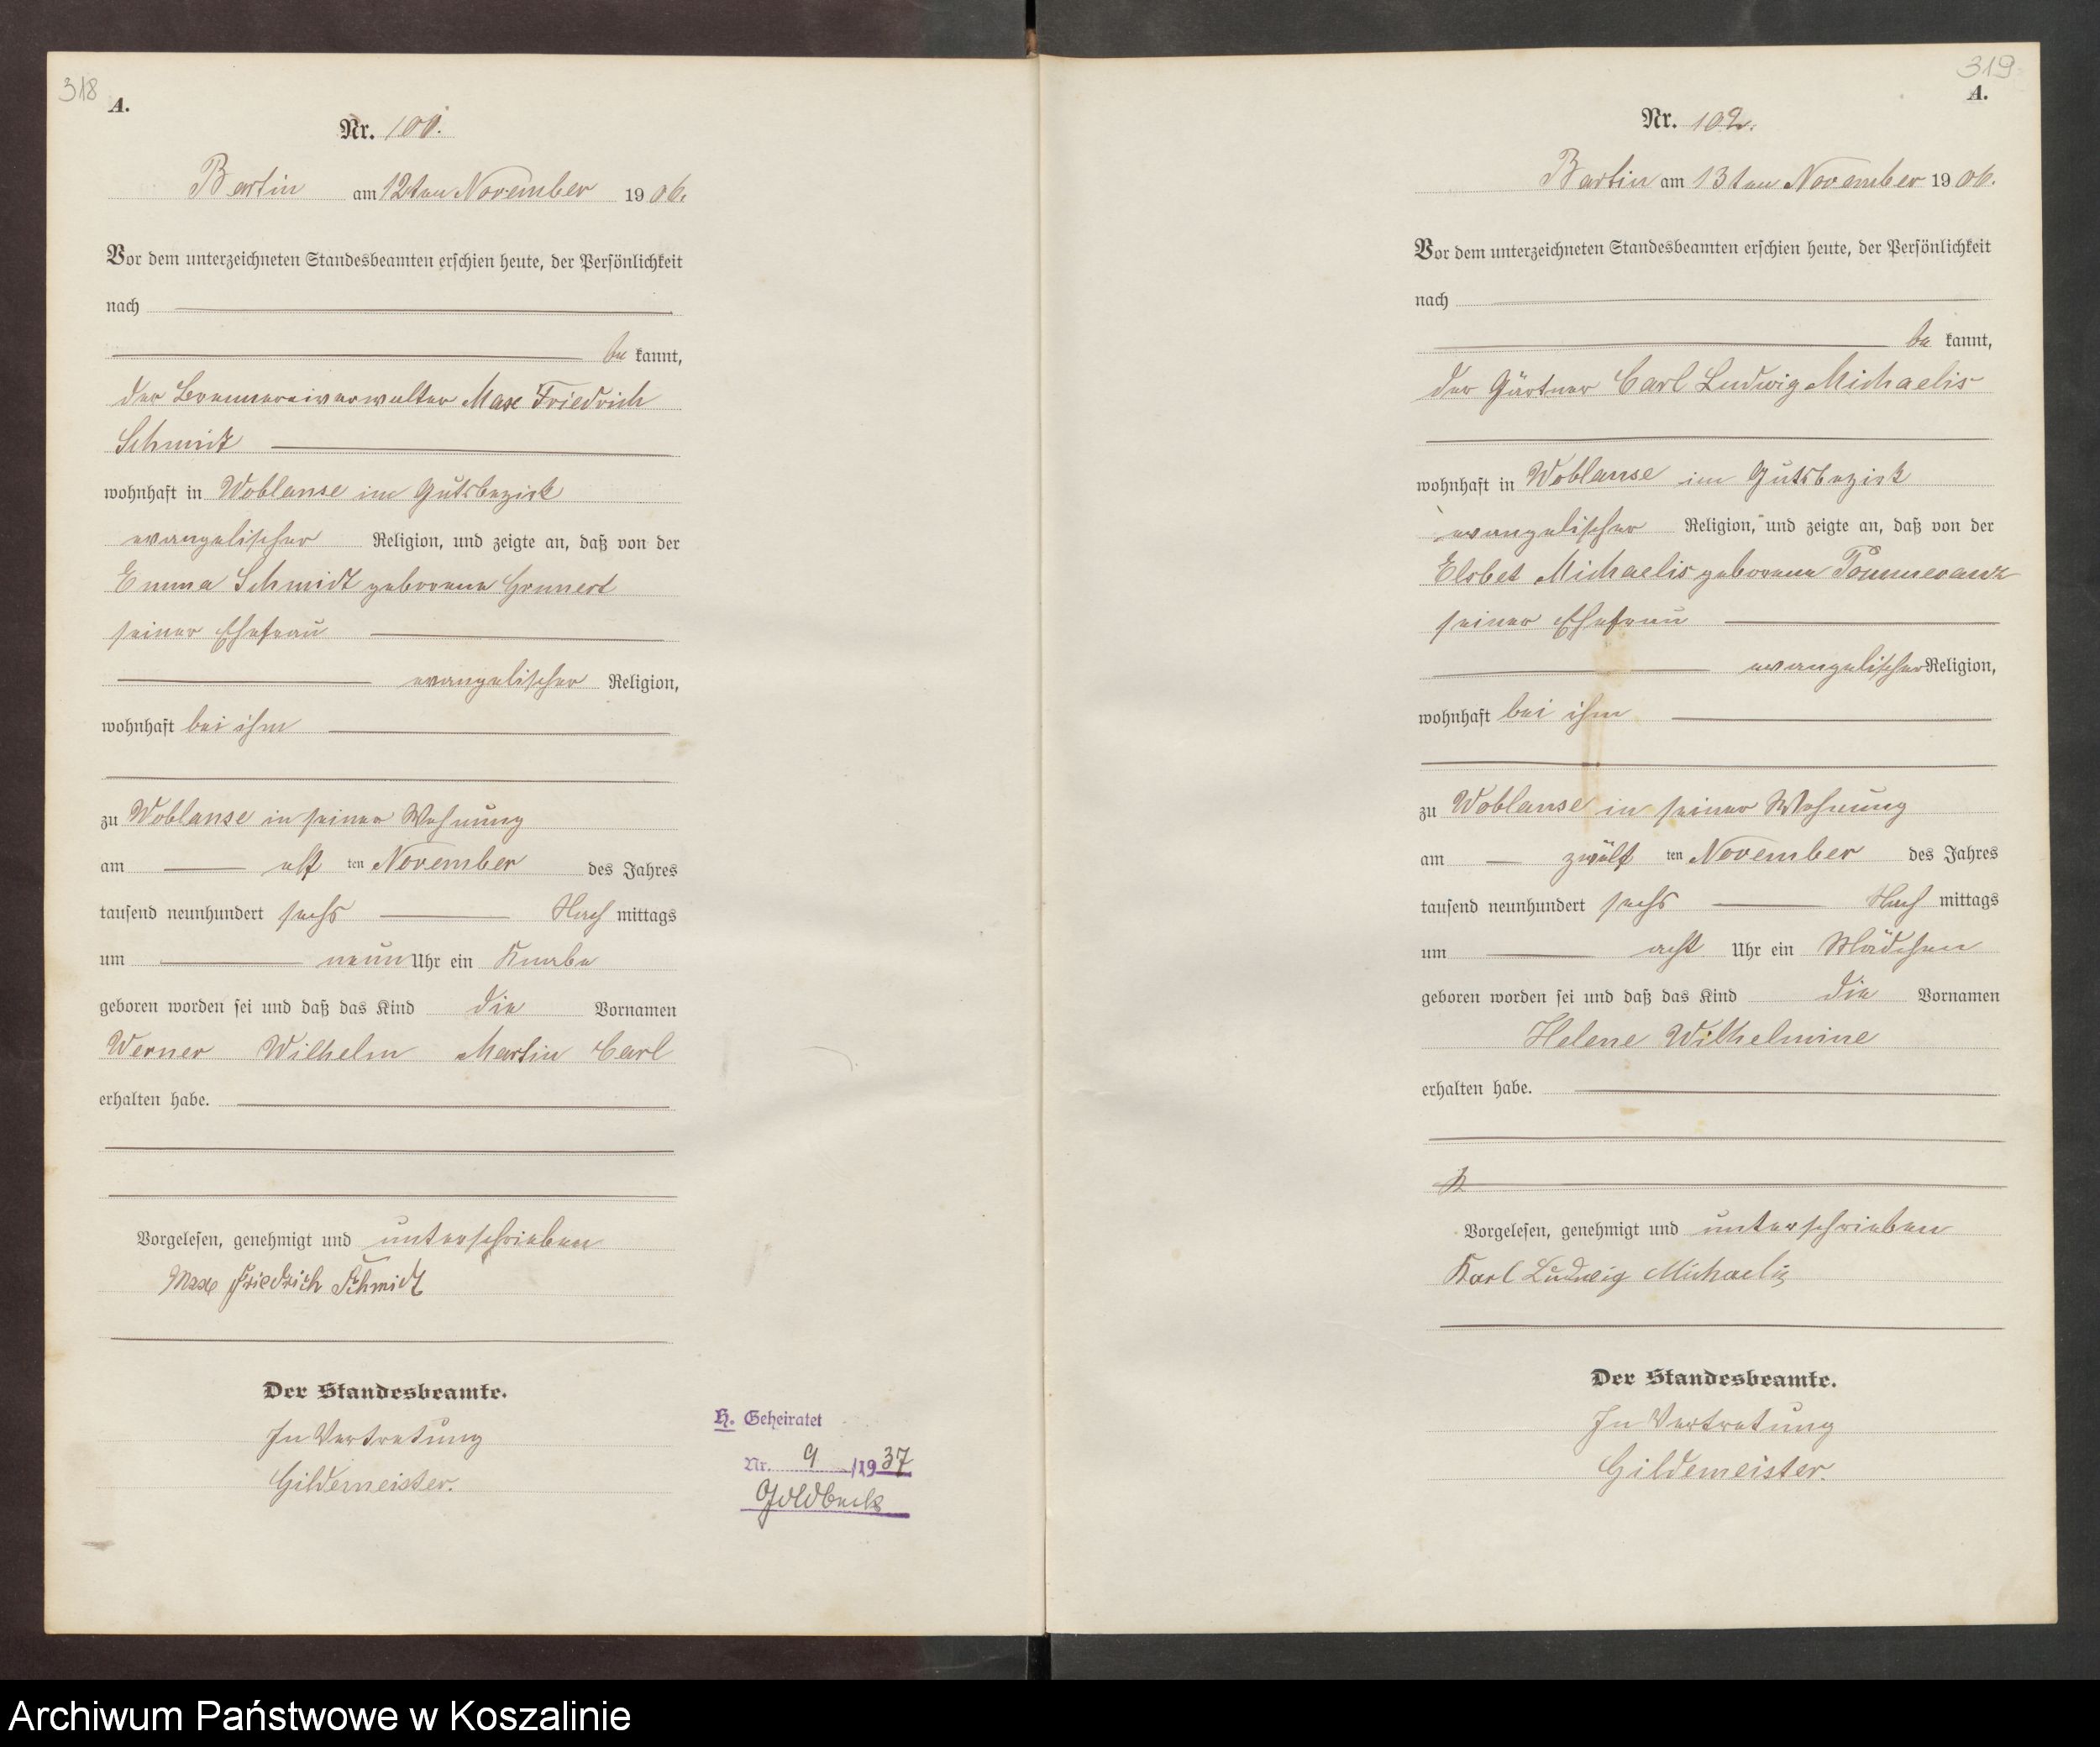 318
A.
Nr. 101.
Bartin am 12ten November 1906.
Vor dem unterzeichneten Standesbeamten erschien heute, der Persönlichkeit
nach
be kannt,
der Brennereiverwalter Max Friedrich
Schmidt
wohnhaft in Woblanse im Gutsbezirk
evangelischer Religion, und zeigte an, daß von der
Emma Schmidt geborene Grunert
seiner Ehefrau
evangelischer Religion,
wohnhaft bei ihm
zu Woblanse in seiner Wohnung
am elf ten November des Jahres
tausend neunhundert sechs Nach mittags
um neun Uhr ein Knabe
geboren worden sei und daß das Kind die Vornamen
Werner Wilhelm Martin Carl
erhalten habe.
Vorgelesen, genehmigt und unterschrieben
Max Friedrich Schmidt
Der Standesbeamte.
In Vertretung
Gildemeister.
H. Geheiratet
Nr. 9 /1937
Goldbeck
319
A.
Nr. 102.
Bartin am 13ten November 1906.
Vor dem unterzeichneten Standesbeamten erschien heute, der Persönlichkeit
nach
be kannt,
der Gärtner Carl Ludwig Michaelis
wohnhaft in Woblanse im Gutsbezirk
evangelischer Religion, und zeigte an, daß von der
Elsbet Michaelis geborene Pommeranz
seiner Ehefrau
evangelischer Religion,
wohnhaft bei ihm
zu Woblanse in seiner Wohnung
am zwölf ten November des Jahres
tausend neunhundert sechs Nach mittags
um acht Uhr ein Mädchen
geboren worden sei und daß das Kind die Vornamen
Helene Wilhelmine
erhalten habe.
Vorgelesen, genehmigt und unterschrieben
Karl Ludwig Michaelis
Der Standesbeamte.
In Vertretung
Gildemeister.
Archiwum Państwowe w Koszalinie